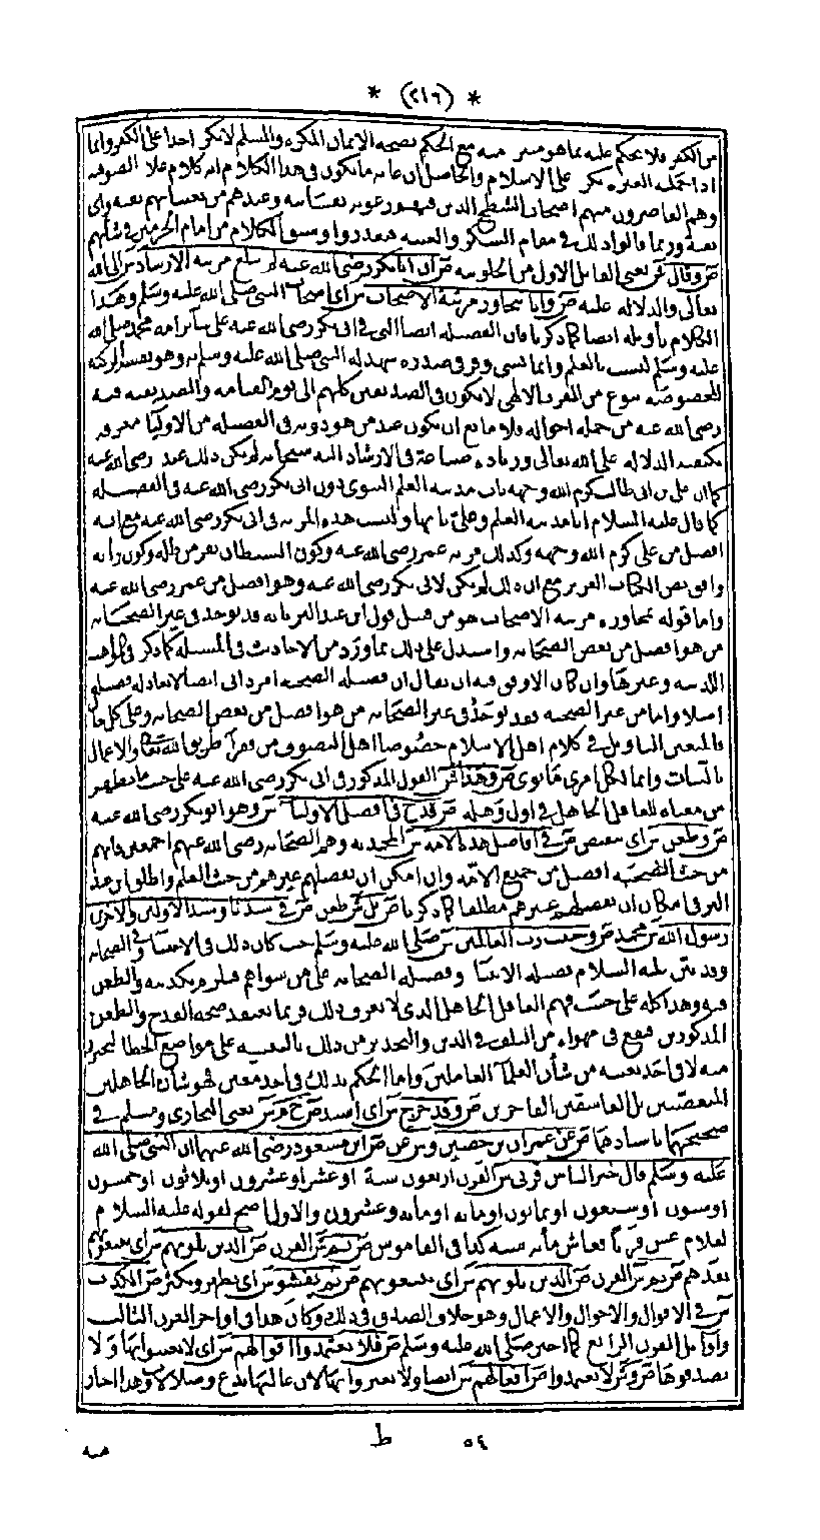 * (٢١٦) *
من الكفر فلا يحكم عليه بما هو مع الحكم بصحة الايمان المكره والمسلم لا يكره احدا على الكفر وانما
اذا حمله الغيره يكره على الاسلام والحاصل ان غاية ما يكون فى هذا الكلام انه كلام غلاة الصوفية
وهم القاصرون منهم اصحاب الشطح الذين فيهم رعونة نفسانية وعندهم من نفسانهم بقية واى
بقية وربما قالوا ذلك فى مقام السكر والغيبة فيعذروا وسبق الكلام من امام الحرمين فى شأنهم
ص وقال ش يعنى القائل الاول من الخلوتية ص ان ابا بكر رضى الله عنه لم يبلغ مرتبة الارشاد ش الى الله
تعالى والدلالة عليه ص وانا نتجاوز مرتبة الاصحاب ش اى اصحاب النبى صلى الله عليه وسلم وهذا
الكلام تأويله ايضا كما ذكرنا فان الفضيلة ايضا التى فى ابى بكر رضى الله عنه على سائر امة محمد صلى الله
عليه وسلم ليست بالعلم وانما بشئ وقر فى صدره شهد له النبى صلى الله عليه وسلم به وهو نفس المزكة
المخصوصة بنوع من القرب الالهى لا يكون فى الصديقين كلهم الى يوم القيامة والصديقية فيه
رضى الله عنه من جملة احواله فلا مانع ان يكون عند من هو دونه فى الفضيلة من الاولياء معرفة
بكيفية الدلالة على الله تعالى وزيادة صناعة فى الارشاد اليه سبحانه لم يكن ذلك عند رضى الله عنه
كما ان على بن ابى طالب كرم الله وجهه باب مدينة العلم النبوى دون ابى بكر رضى الله عنه فى الفضيلة
كما قال عليه السلام انا مدينة العلم وعلى بابها وليست هذه المزية فى ابى بكر رضى الله عنه مع انه
افضل من على كرم الله وجهه وكذلك مزية عمر رضى الله عنه وكون الشيطان يفر من ظله وكون رأيه
وافق نص الكتاب العزيز مع ان ذلك لم يكن لابى بكر رضى الله عنه وهو افضل من عمر رضى الله عنه
واما قوله نتجاوز مرتبة الاصحاب هو من قبيل قول ابن عبد البر بانه قد يوجد فى غير الصحابة
من هو افضل من بعض الصحابة واستدل على ذلك بما ورد من الاحاديث فى المسئلة كما ذكر فى المواهب
اللدنية وغيرها وان كان الاوفق فيه ان يقال ان فضيلة الصحبة امر ذاتى ايضا لا تعادله فضيلة
اصلا واما من غير الصحبة فقد يوجد فى غير الصحابة من هو افضل من بعض الصحابة وعلى كل حال
فالمتعين التأويل فى كلام اهل الاسلام خصوصا اهل التصوف من فقراء طريق الله تعالى والاعمال
بالنيات وانما لكل امرئ ما نوى ص وهذا ش القول المذكور فى ابى بكر رضى الله عنه على حسب ما يظهر
من معناه للغافل الجاهل فى اول وهلة ص قدح فى افضل الاولياء ش وهو ابو بكر رضى الله عنه
ص وطعن ش اى تنقيص ص فى افاضل هذه الامة ش المحمدية وهم الصحابة رضى الله عنهم اجمعين فانهم
من حيث الصحبة افضل من جميع الامة وان امكن ان يفضلهم غيرهم من حيث العلم واطلق ابن عبد
البر فى امكان ان يفضلهم غيرهم مطلقا كما ذكرنا ص بل ش طعن ص فى سيدنا وسيد الاولين والاخرين
رسول الله ش محمد ص وحبيب رب العالمين ش صلى الله عليه وسلم حيث كان ذلك فى الانبياء وفى الصحابة
وقد بين عليه السلام فضيلة الانبياء وفضيلة الصحابة على من سواهم فيلزم تكذيبه والطعن
فيه وهذا كله على حسب فهم الغافل الجاهل الذى لا يعرف ذلك فربما يعتقد صحة القدح والطعن
المذكورين فيقع فى مهواة من التلف فى الدين والتحذير من ذلك بالتنبيه على مواضع الخطا ليحترز
منه لا فى احد بعينه من شأن العلماء العاملين واما الحكم بذلك فى احد معين فهو شأن الجاهلين
المتعصبين بل الفاسقين الفاجرين ص وقد خرج ش اى اسند ص خ م ش يعنى البخارى ومسلم فى
صحيحيهما باسنادهما ص عن عمران بن حصين و ش عن ص ابن مسعود رضى الله عنهما ان النبى صلى الله
عليه وسلم قال خير الناس قرنى ش القرن اربعون سنة او عشر او عشرون او ثلاثون او خمسون
او ستون او سبعون او ثمانون او مائة او مائة وعشرون والاول اصح لقوله عليه السلام
لغلام عش قرنا فعاش مائة سنة كذا فى القاموس ص ثم ش القرن ص الذين يلونهم ش اى يتبعونهم
بعدهم ص ثم ش القرن ص الذين يلونهم ش اى يتبعونهم ص ثم يفشو ش اى يظهر ويكثر ص الكذب
ش فى الاقوال والاحوال والاعمال وهو خلاف الصدق فى ذلك وكان هذا فى اواخر القرن الثالث
واوائل القرن الرابع كما اخبر صلى الله عليه وسلم ص فلا تعتمدوا اقوالهم ش اى لا تعتبروا بها ولا
تصدقوها ص و ش لا تعتمدوا ص افعالهم ش ايضا ولا تغتروا بها لان غالبها بدع وضلالات وهذا اخبار
٥٤ ط
منه